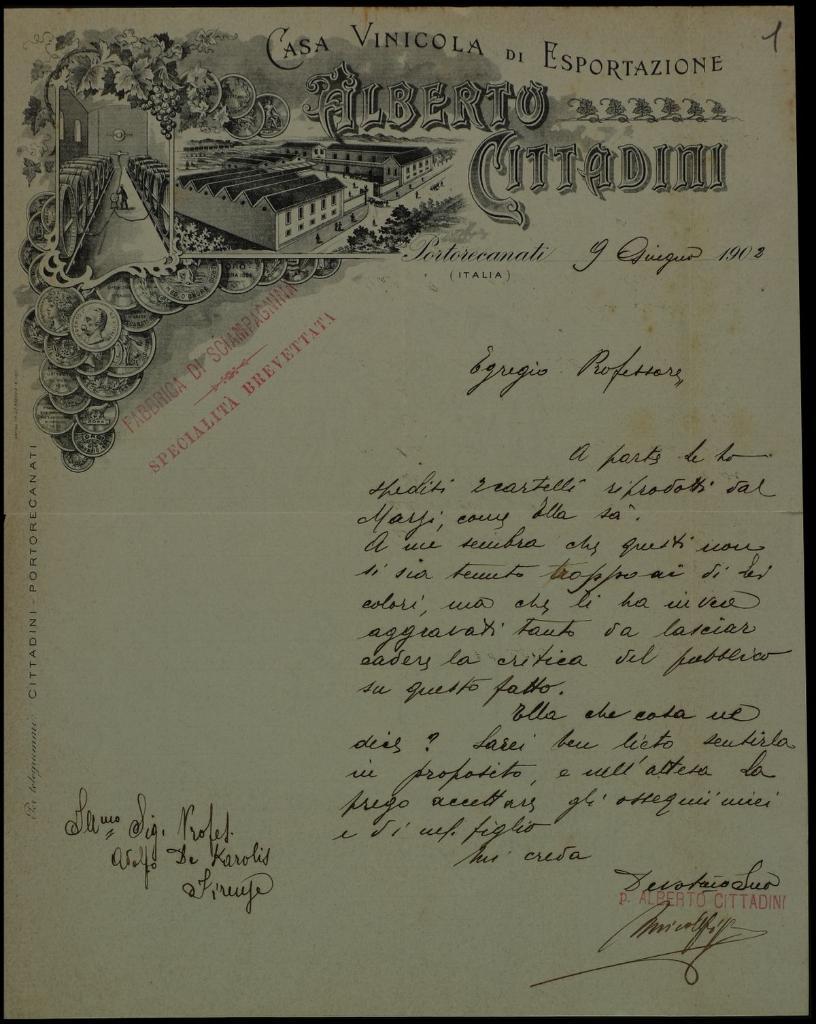 1
CASA VINICOLA DI ESPORTAZIONE
ALBERTO
CITTADINI
Portorecanati 9 Giugno 1902
(ITALIA)
FABBRICA DI SCIAMPAGNINA
SPECIALITÀ BREVETTATA
Egregio Professore,
A parte le ho
spediti 2 cartelli riprodotti dal
come Ella sà.
A me sembra che questi non
si sia tenuto troppo ai di Lei
colori, ma che li ha invece
aggravati tanto da lasciar
cadere la critica del pubblico
su questo fatto.
Ella che cosa ne
dice? Sarei ben lieto sentirla
in proposito, e nell'attesa La
prego accettare gli ossequi miei
e di figlio
Mi creda
Devotmo Suo
p. ALBERTO CITTADINI
Illmo Sig. Profes.
Adolfo De Karolis
Firenze
Per telegrammi: CITTADINI - PORTORECANATI